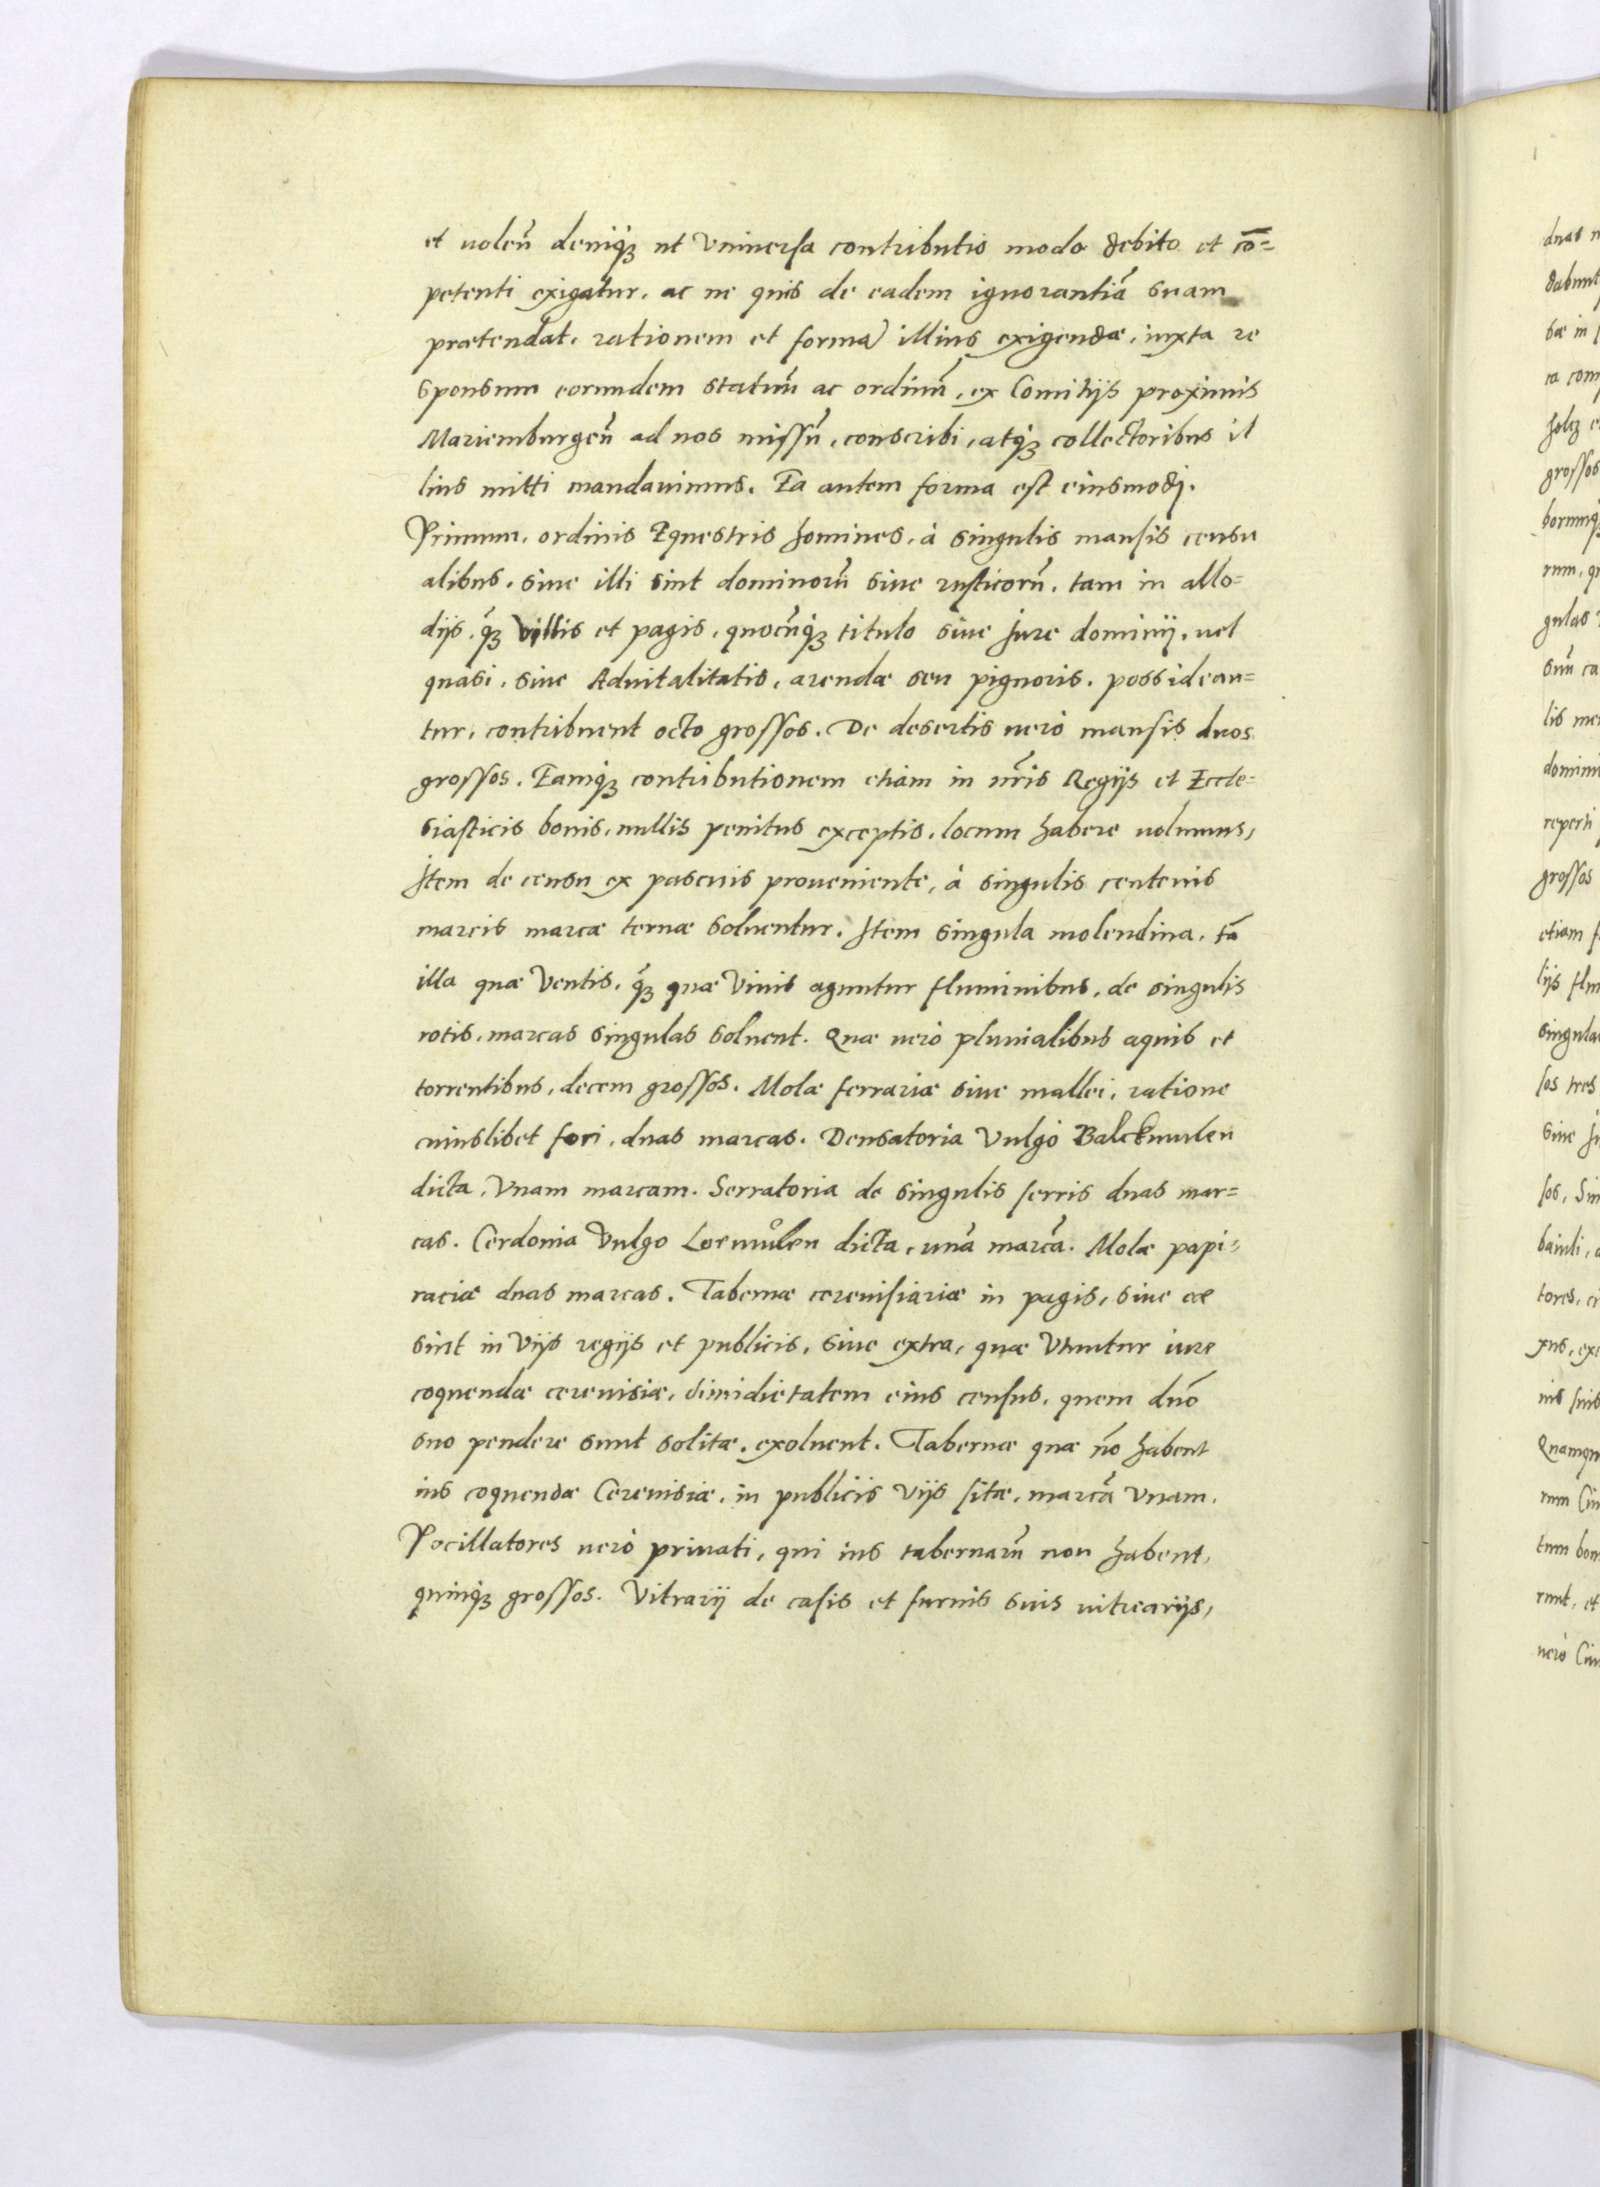 et uolen̄ deniqȝ ut Vniuersa contributio modo debito et cō=
petenti exigatur, ac ne quis de eadem ignorantiā suam
prætendat, rationem et formā illius exigendæ, iuxta re
sponsum eorundem statuū ac ordinū, ex Comitijs proximis
Mariemburgen̄ ad nos missū, conscribi, atqȝ collectoribus il
lius mitti mandauimus. Ea autem forma est eiusmodi.
Primum, ordinis Equestris homines, à singulis mansis censu
alibus, siue illi sint dominorū siue rusticorū, tam in allo=
dijs, q̄ȝ villis et pagis, quocūqȝ titulo siue Jure dominij, uel
quasi, siue Aduitalitatis, arendæ seu pignoris, possidean=
tur, contribuent octo grossos. De desertis uerò mansis duos
grossos. Eamqȝ contributionem etiam in nr̄is Regijs et Eccle=
siasticis bonis, nullis penitus exceptis, locum habere uolumus,
Item de censu ex pascuis proueniente, à singulis centenis
marcis marcæ ternæ soluentur. Item singula molendina, tā
illa quæ Ventis, q̄ȝ quæ Viuis aguntur fluminibus, de singulis
rotis, marcas singulas soluent. Quæ uerò pluuialibus aquis et
torrentibus, decem grossos. Molæ ferrariæ siue mallei, ratione
cuiuslibet fori, duas marcas. Densatoria Vulgò Balckmulen
dicta, Vnam marcam. Serratoria de singulis serris duas mar=
cas. Cerdonia Vulgo Loemůlen dicta, unā marcā. Molæ papi=
raciæ duas marcas. Tabernæ cereuisiariæ in pagis, siue eæ
sint in Vijs regijs et publicis, siue extra, quæ Vtuntur iure
coquendæ cereuisiæ, dimidietatem eius census, quem dn̄o
suo pendere sunt solitæ, exoluent. Tabernæ quæ nō habent
ius coquendæ Cereuisiæ, in publicis Vijs sitæ, marcā Vnam.
Pocillatores uerò priuati, qui ius tabernarū non habent,
quinqȝ grossos. Vitrarij de casis et furnis suis uitrearijs,